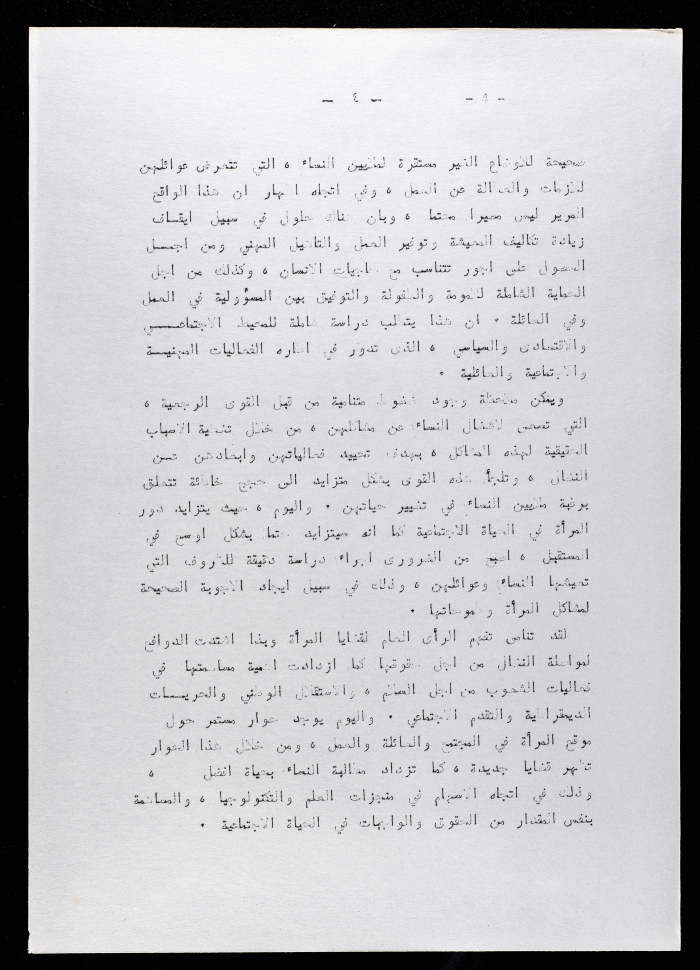 - ٤ - - ٨ -
صحيحة للاوضاع الغير مستقرة لملايين النساء ، التي تتعرض عوائلهن
للازمات والبطالة عن العمل ، وفي اتجاه اظهار ان هذا الواقع
المرير ليس مصيرا محتما ، وبان هناك حلول في سبيل ايقاف
زيادة تكاليف المعيشة وتوفير العمل والتأهيل المهني ومن اجل
الحصول على اجور تتناسب مع حاجيات الانسان ، وكذلك من اجل
الحماية الشاملة للامومة والطفولة والتوفيق بين المسؤولية في العمل
وفي العائلة . ان هذا يتطلب دراسة شاملة للمحيط الاجتماعي
والاقتصادى والسياسي ، الذى تدور في اطاره الفعاليات المهنية
والاجتماعية والعائلية .
ويمكن ملاحظة وجود ضغوط متنامية من قبل القوى الرجعية ،
التي تسعى لاشغال النساء عن مشاكلهن ، من خلال تغطية الاسباب
الحقيقية لهذه المشاكل ، بهدف تحييد فعالياتهن وابعادهن عن
النضال ، وتلجأ هذه القوى بشكل متزايد الى حجج خاطئة تتعلق
برغبة ملايين النساء في تغيير حياتهن . واليوم ، حيث يتزايد دور
المرأة في الحياة الاجتماعية كما انه سيتزايد حتما بشكل اوسع في
المستقبل ، اصبح من الضرورى اجراء دراسة دقيقة للظروف التي
تعيشها النساء وعوائلهن ، وذلك في سبيل ايجاد الاجوبة الصحيحة
لمشاكل المرأة وطموحاتها .
لقد تنامى تفهم الرأى العام لقضايا المرأة وبذا اشتدت الدوافع
لمواصلة النضال من اجل حقوقها كما ازدادت اهمية مساهمتها في
فعاليات الشعوب من اجل السلام ، والاستقلال الوطني والحريات
الديمقراطية والتقدم الاجتماعي . واليوم يوجد حوار مستمر حول
موقع المرأة في المجتمع والعائلة والعمل ، ومن خلال هذا الحوار
تظهر قضايا جديدة ، كما تزداد مطالبة النساء بحياة افضل ،
وذلك في اتجاه الاسهام في منجزات العلم والتكنولوجيا ، والمساهمة
بنفس المقدار من الحقوق والواجبات في الحياة الاجتماعية .